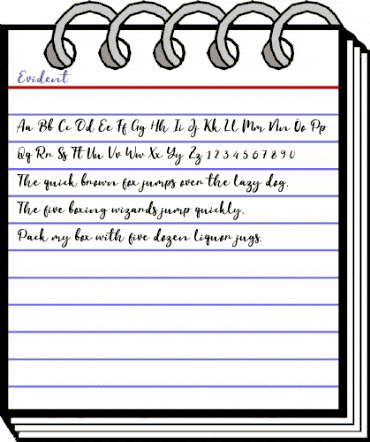 Evident
Aa Bb Cc Dd Ee Ff Gg Hh Ii Jj Kk Ll Mm Nn Oo Pp
Qq Rr Ss Tt Uu Vv Ww Xx Yy Zz 1 2 3 4 5 6 7 8 9 0
The quick brown fox jumps over the lazy dog.
The five boxing wizards jump quickly.
Pack my box with five dozen liquor jugs.